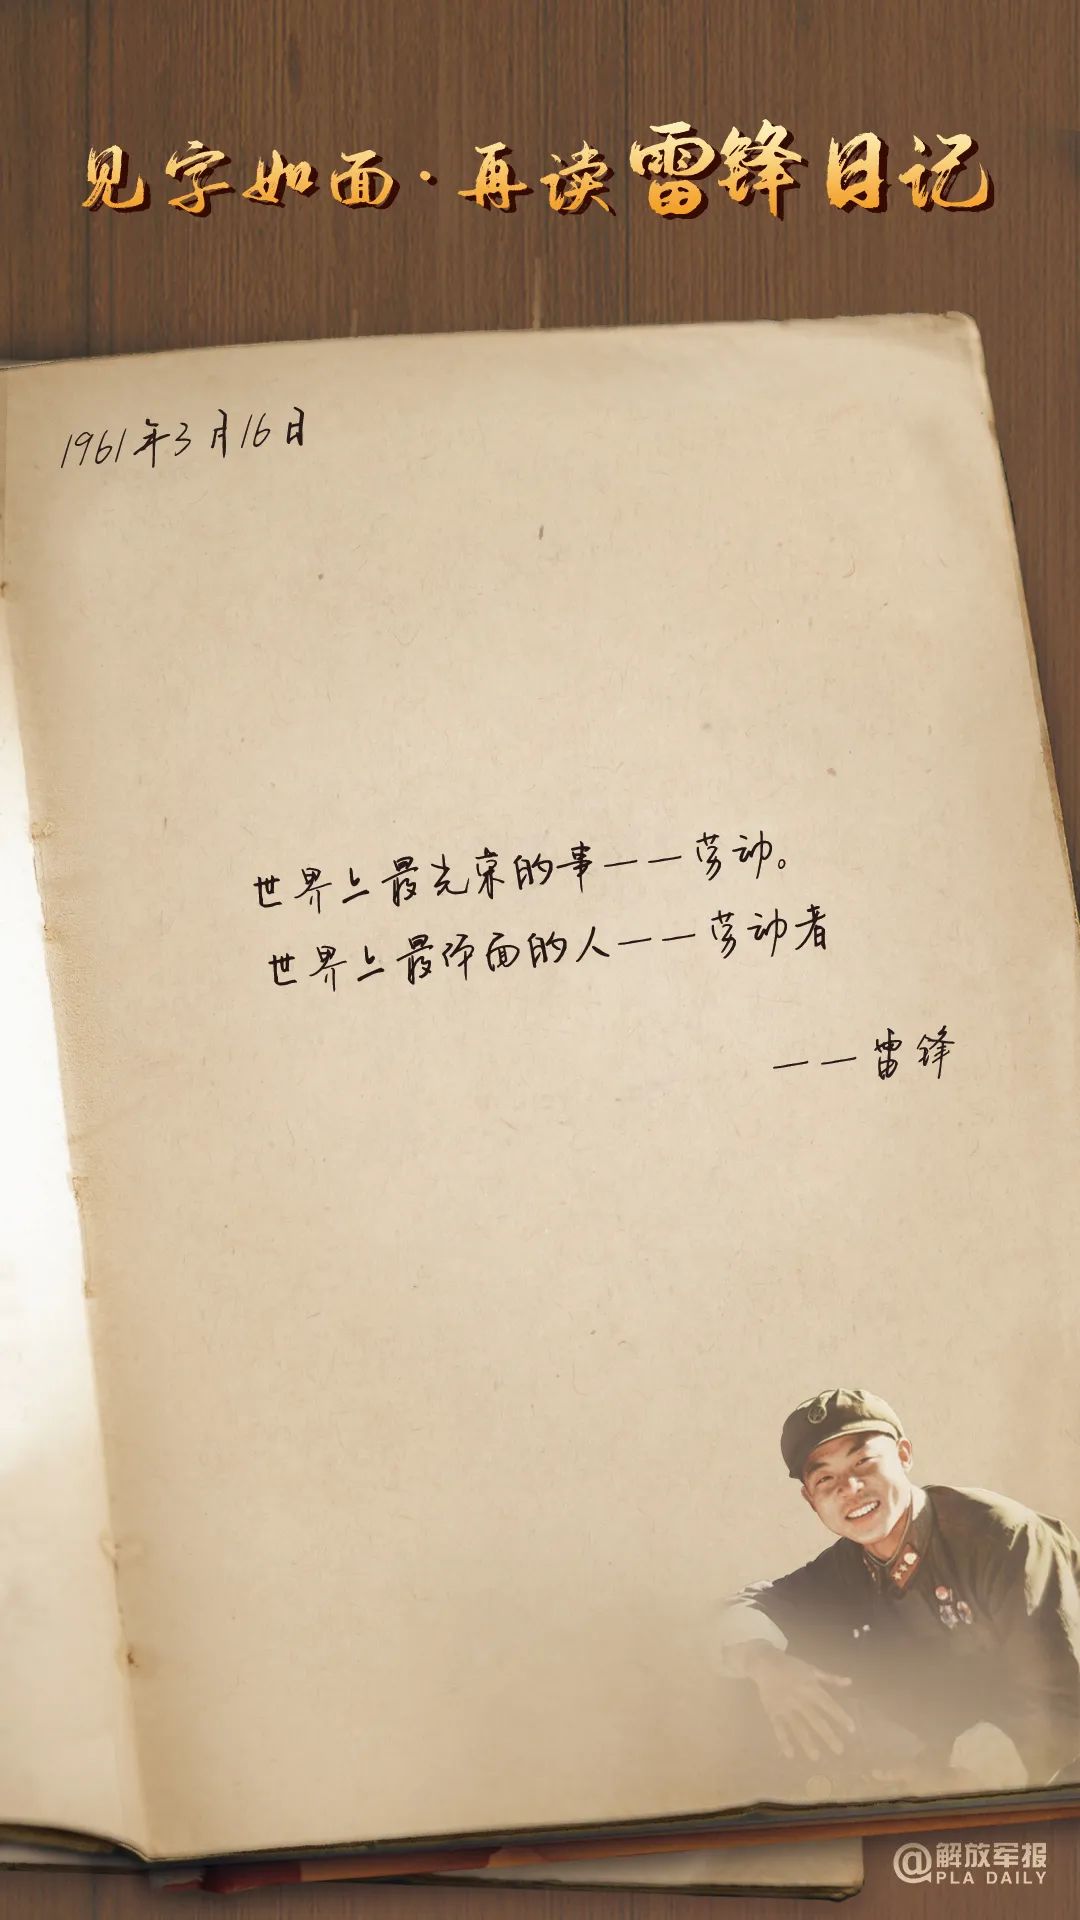 见字如面·再读雷锋日记
1961年3月16日
世界上最光荣的事——劳动。
世界上最体面的人——劳动者
——雷锋
@解放军报
PLA DAILY